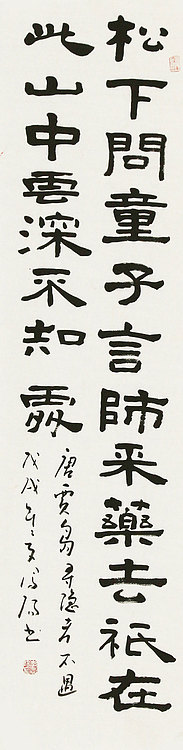 松下問童子言師采藥去祇在
此山中雲深不知處
唐賈島尋隱者不遇
戊戌年夏